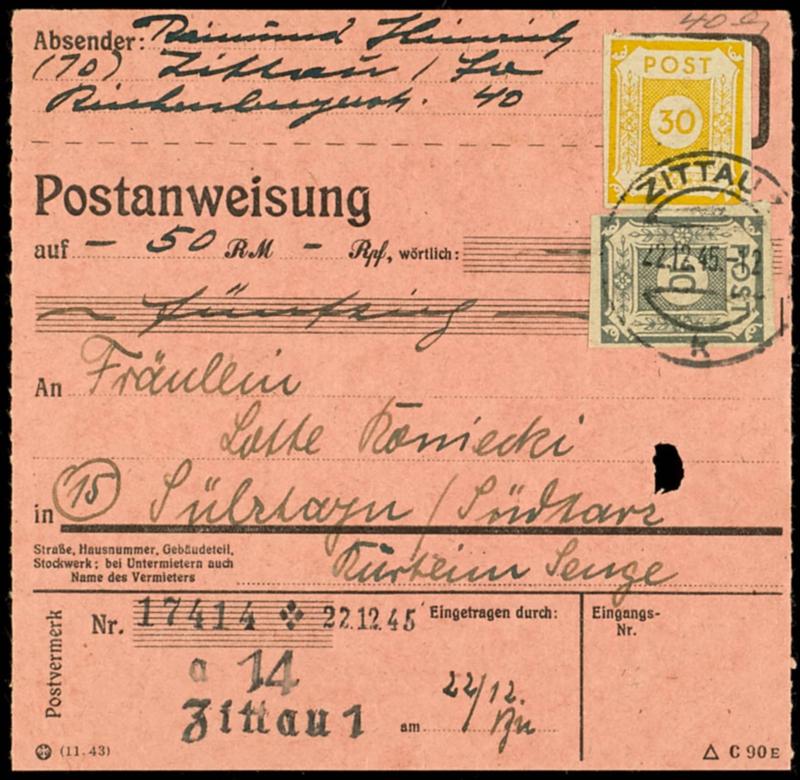 40
Absender: Raimund Heinrich
(10) Zittau / Sa
Reichenbergerstr. 40
POST
30
Postanweisung
ZITTAU 1
22.12.45.-12
POST
10
k
auf - 50 RM - Rpf, wörtlich:
~ fünfzig ~
An Fräulein
Lotte Koniecki
in (15) Sülzhayn / Südharz
Straße, Hausnummer, Gebäudeteil,
Stockwerk; bei Untermietern auch
Name des Vermieters
Kurheim Senge
Postvermerk
Nr. 17414 22.12.45
Eingetragen durch:
Eingangs-
Nr.
a 14
Zittau 1
am 22/12.
(11.43)
C 90 E